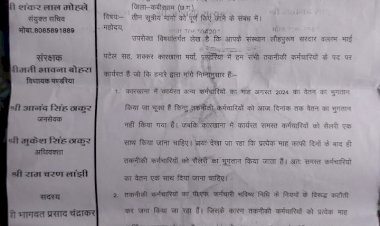 श्री शंकर लाल मोहले
संयुक्त सचिव
मोबा.8085891889
संरक्षक
श्रीमती भावना बोहरा
विधायक पण्डरिया
श्री आनंद सिंह ठाकुर
जनसेवक
श्री मुकेश सिंह ठाकुर
अधिवक्ता
श्री राम चरण लांझी
सदस्य
श्री भागवत प्रसाद चंद्राकर
जिला-कबीरधाम (छ.ग.)
विषयः- तीन सूत्रीय मांगो को पूर्ण किए जाने के संबध में।
महोदय,
उपरोक्त विषयांतर्गत लेख है कि आपके संस्थान लौहपुरूष सरदार वल्लभ भाई
पटेल सह. शक्कर कारखाना मर्या. पण्डरिया में हम सभी तकनीकी कर्मचारियों के पद पर
कार्यरत है जो कि हमारे द्वारा मांगे निम्नानुसार हैः-
1. कारखाना में कार्यरत अन्य कर्मचारियों का माह अगस्त 2024 का वेतन का भुगतान
किया जा चुका है किन्तु तकनीकी कर्मचारियों को आज दिनांक तक वेतन का भुगतान
नहीं किया गया है। जबकि कारखाना में कार्यरत समस्त कर्मचारियों को सैलरी एक
साथ किया जाना चाहिए। यहा देखा जा रहा कि प्रत्येक माह काफी दिनों के बाद ही
तकनीकी कर्मचारियों को सैलरी का भुगतान किया जाता हैं। अतः समस्त कर्मचारियों
का वेतन एक साथ दिया जाना चाहिए।
2. तकनीकी कर्मचारियों का पीएफ कर्मचारी भविष्य निधि के नियमों के विरूद्ध कटौती
कर जमा किया जा रहा हैं। जिसके कारण तकनीकी कर्मचारियों को प्रत्येक माह